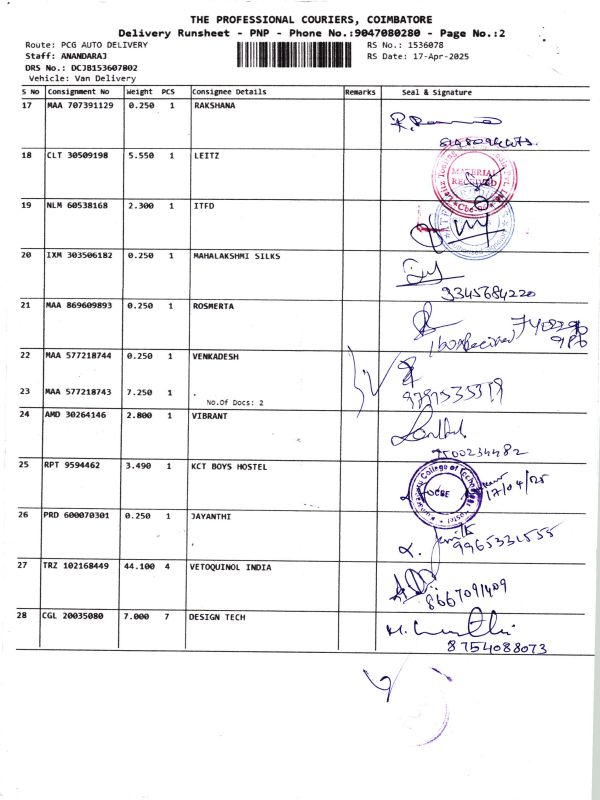 THE PROFESSIONAL COURIERS, COIMBATORE
Delivery Runsheet - PNP - Phone No.:9047080280 - Page No.:2
Route: PCG AUTO DELIVERY
RS No.: 1536078
Staff: ANANDARAJ
RS Date: 17-Apr-2025
DRS No.: DCJB153607802
Vehicle: Van Delivery
S No Consignment No Weight PCS Consignee Details Remarks Seal & Signature
17 MAA 707391129 0.250 1 RAKSHANA
18 CLT 30509198 5.550 1 LEITZ
MATERIAL
RECEIVED
19 NLM 60538168 2.300 1 ITFD
20 IXM 303506182 0.250 1 MAHALAKSHMI SILKS
9345684220
21 MAA 869609893 0.250 1 ROSMERTA
22 MAA 577218744 0.250 1 VENKADESH
23 MAA 577218743 7.250 1
No.Of Docs: 2
24 AMD 30264146 2.800 1 VIBRANT
7500234482
25 RPT 9594462 3.490 1 KCT BOYS HOSTEL
17/04/25
26 PRD 600070301 0.250 1 JAYANTHI
9965331555
27 TRZ 102168449 44.100 4 VETOQUINOL INDIA
8667091409
28 CGL 20035080 7.000 7 DESIGN TECH
8754088073